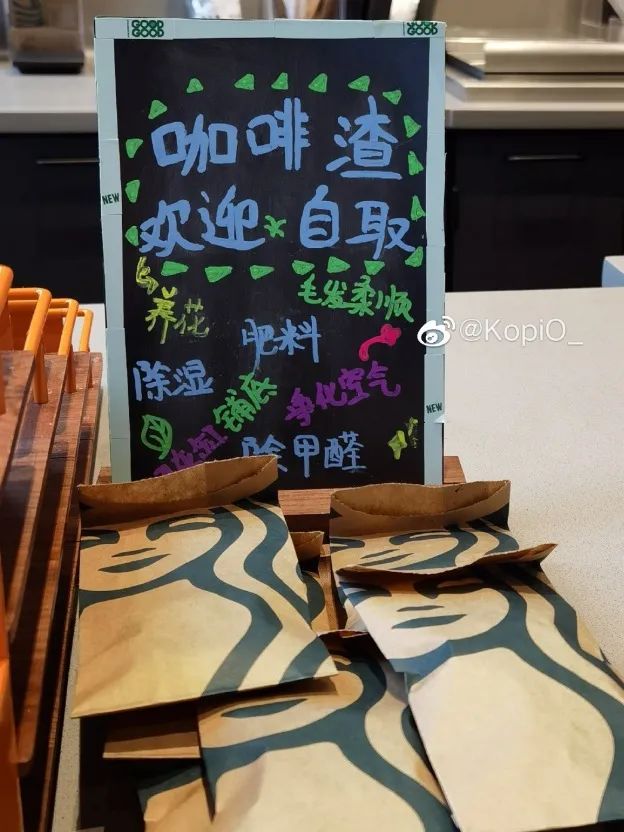 GOOD GOOD
GOOD GOOD
咖啡渣
NEW
欢迎自取
养花
毛发柔顺
肥料
@KopiO_
除湿
铺底
净化空气
NEW
除甲醛